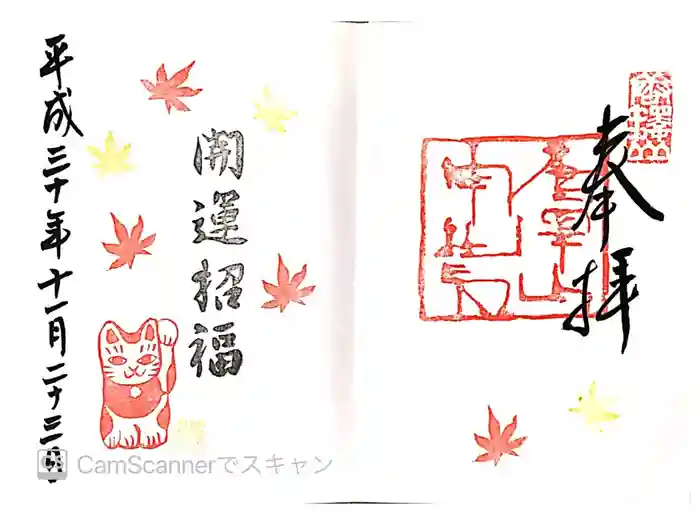 奉拝
開運招福
平成三十年十一月二十三日
CamScannerでスキャン